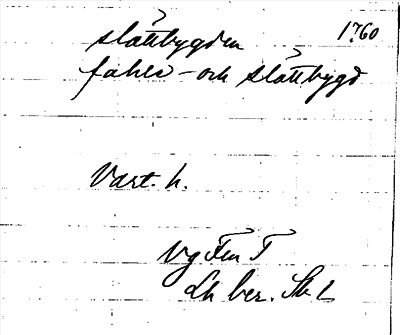 slättbygden 1760
fahls- och slättbygd
Vart. h.
Vg
Lh ber.